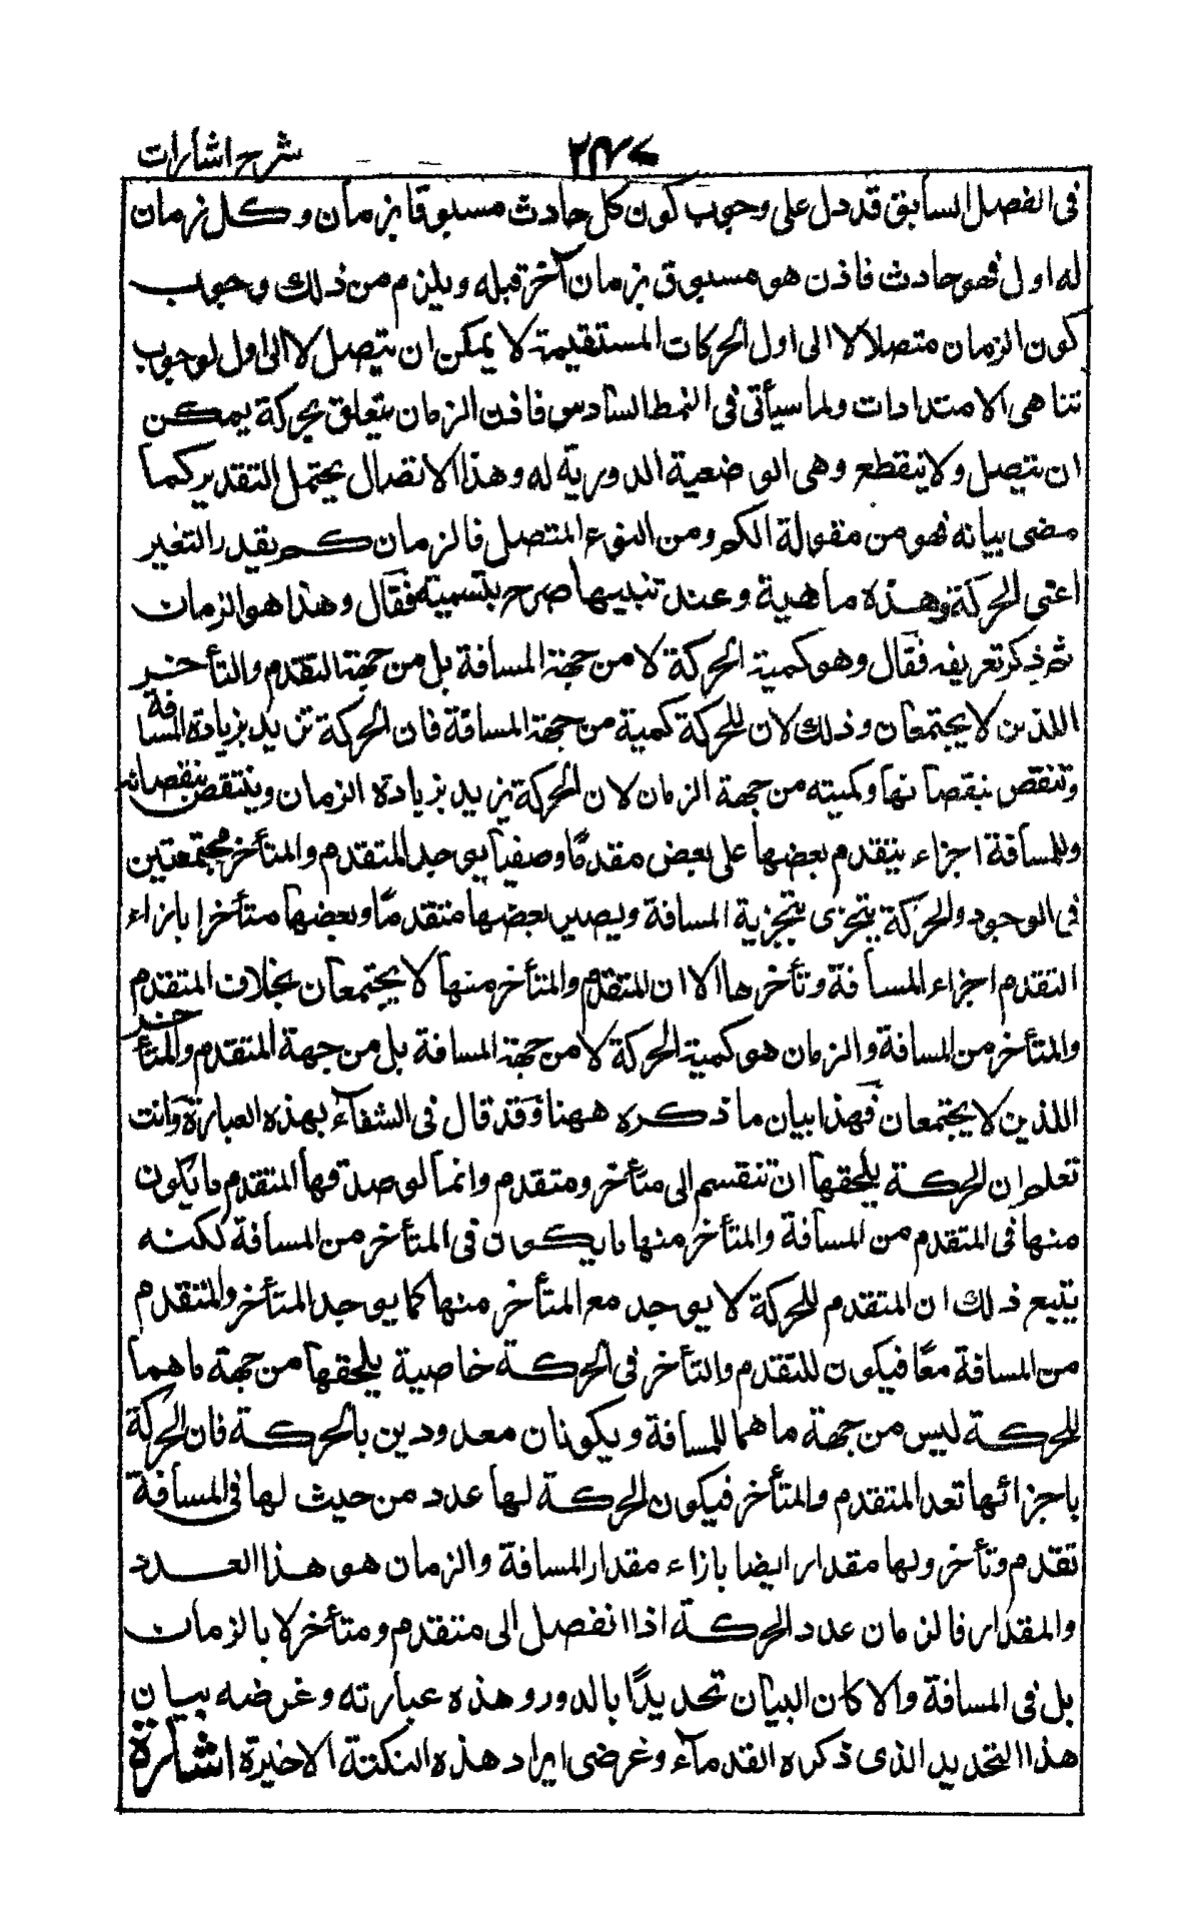 شرح اشارات
۲۴۷
فى الفصل السابق قد دل على وجوب كون كل حادث مسبوقا بزمان وكل زمان
له اول فهو حادث فاذن هو مسبوق بزمان آخر قبله ويلزم من ذلك وجوب
كون الزمان متصلا لا الى اول الحركات المستقيمة لا يمكن ان يتصل لا الى اول لوجوب
تناهى الامتدادات ولما سيأتى فى النمط السادس فاذن الزمان يتعلق بحركة يمكن
ان يتصل ولا ينقطع وهى الوضعية الدورية له وهذا الاتصال يحتمل التقدير كما
مضى بيانه فهو من مقولة الكم ومن النوع المتصل فالزمان كم يقدر التغير
اعنى الحركة وهذه ماهية وعند تنبيها صرح بتسميته فقال وهذا هو الزمان
ثم ذكر تعريفه فقال وهو كمية الحركة لا من جهة المسافة بل من جهة التقدم والتأخر
اللذين لا يجتمعان وذلك لان للحركة كمية من جهة المسافة فان الحركة تزيد بزيادة المسافة
وتنقص بنقصانها وكميته من جهة الزمان لان الحركة يزيد بزيادة الزمان وينتقص بنقصانه
وللمسافة اجزاء يتقدم بعضها على بعض مقدما وصفيا يوجد المتقدم والمتأخر مجتمعتين
فى الوجود والحركة يتجزى بتجزية المسافة ويصير بعضها متقدما وبعضها متأخرا بازاء
التقدم اجزاء المسافة وتأخرها الا ان المتقدم والمتأخر منها لا يجتمعان بخلاف المتقدم
والمتأخر من المسافة والزمان هو كمية الحركة لا من جهة المسافة بل من جهة المتقدم والمتأخر
اللذين لا يجتمعان فهذا بيان ما ذكره ههنا وقد قال فى الشفآء بهذه العبارة وانت
تعلم ان الحركة يلحقها ان تنقسم الى متأخر ومتقدم وانما يوجد فيها المتقدم ما يكون
منها فى المتقدم من المسافة والمتأخر منها ما يكون فى المتأخر من المسافة لكنه
يتبع ذلك ان المتقدم للحركة لا يوجد مع المتأخر منها كما يوجد المتأخر والمتقدم
من المسافة معًا فيكون للتقدم والتأخر فى الحركة خاصية يلحقها من جهة ما هما
للحركة ليس من جهة ما هما للمسافة ويكونان معدودين بالحركة فان الحركة
باجزائها تعد المتقدم والمتأخر فيكون الحركة لها عدد من حيث لها فى المسافة
تقدم وتأخر ولها مقدار ايضا بازاء مقدار المسافة والزمان هو هذا العدد
والمقدار فالزمان عدد الحركة اذا انفصل الى متقدم ومتأخر لا بالزمان
بل فى المسافة والا كان البيان تحديدًا بالدور وهذه عبارته وغرضه بيان
هذا التحديد الذى ذكره القدمآء وغرضى ايراد هذه النكتة الاخيرة اشارة